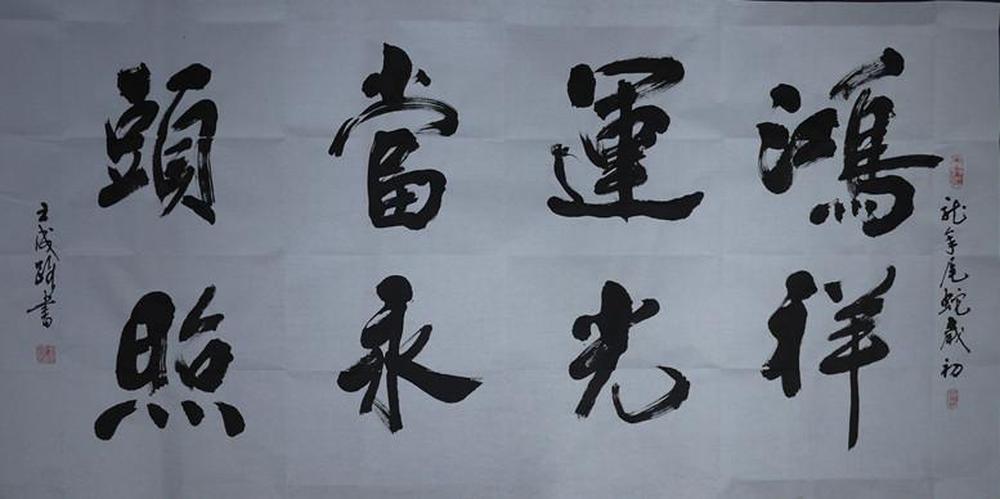 龍年尾蛇歲初
鴻運當頭
祥光永照
王成書